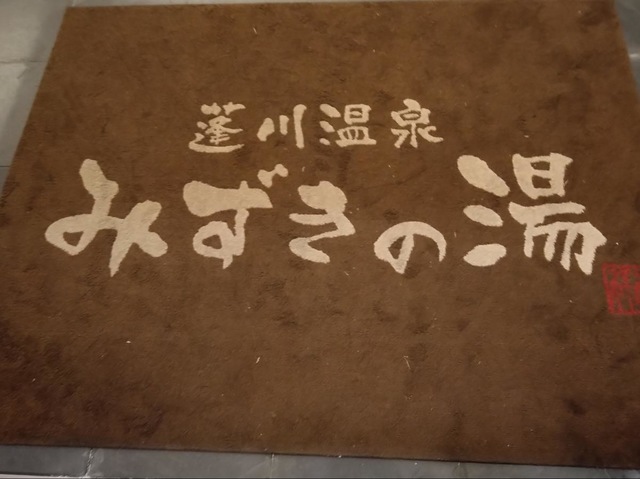 蓬川温泉
みずきの湯